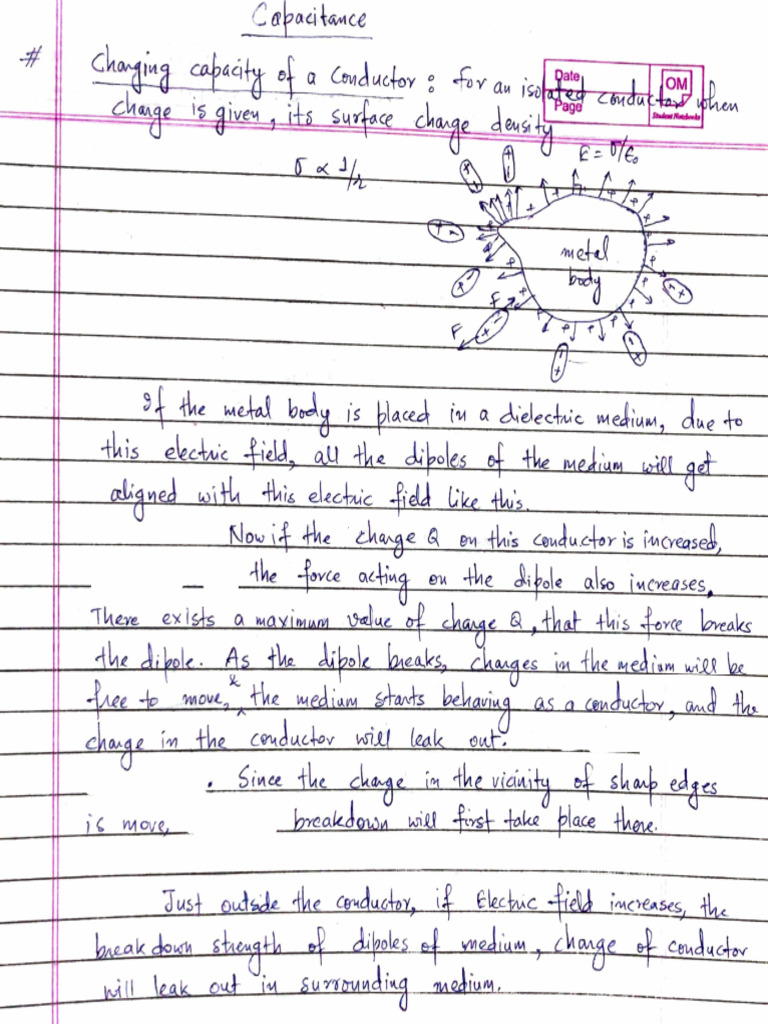 Capacitance
# Charging capacity of a conductor: for an isolated conductor when
charge is given, its surface charge density
Date
Page
OM
Student Notebooks
σ ∝ 1/r
E = σ/ε0
metal
body
F
F
If the metal body is placed in a dielectric medium, due to
this electric field, all the dipoles of the medium will get
aligned with this electric field like this.
Now if the charge Q on this conductor is increased,
the force acting on the dipole also increases.
There exists a maximum value of charge Q, that this force breaks
the dipole. As the dipole breaks, charges in the medium will be
free to move, & the medium starts behaving as a conductor, and the
charge in the conductor will leak out.
. Since the charge in the vicinity of sharp edges
is more, breakdown will first take place there.
Just outside the conductor, if Electric field increases, the
break down strength of dipoles of medium, charge of conductor
will leak out in surrounding medium.